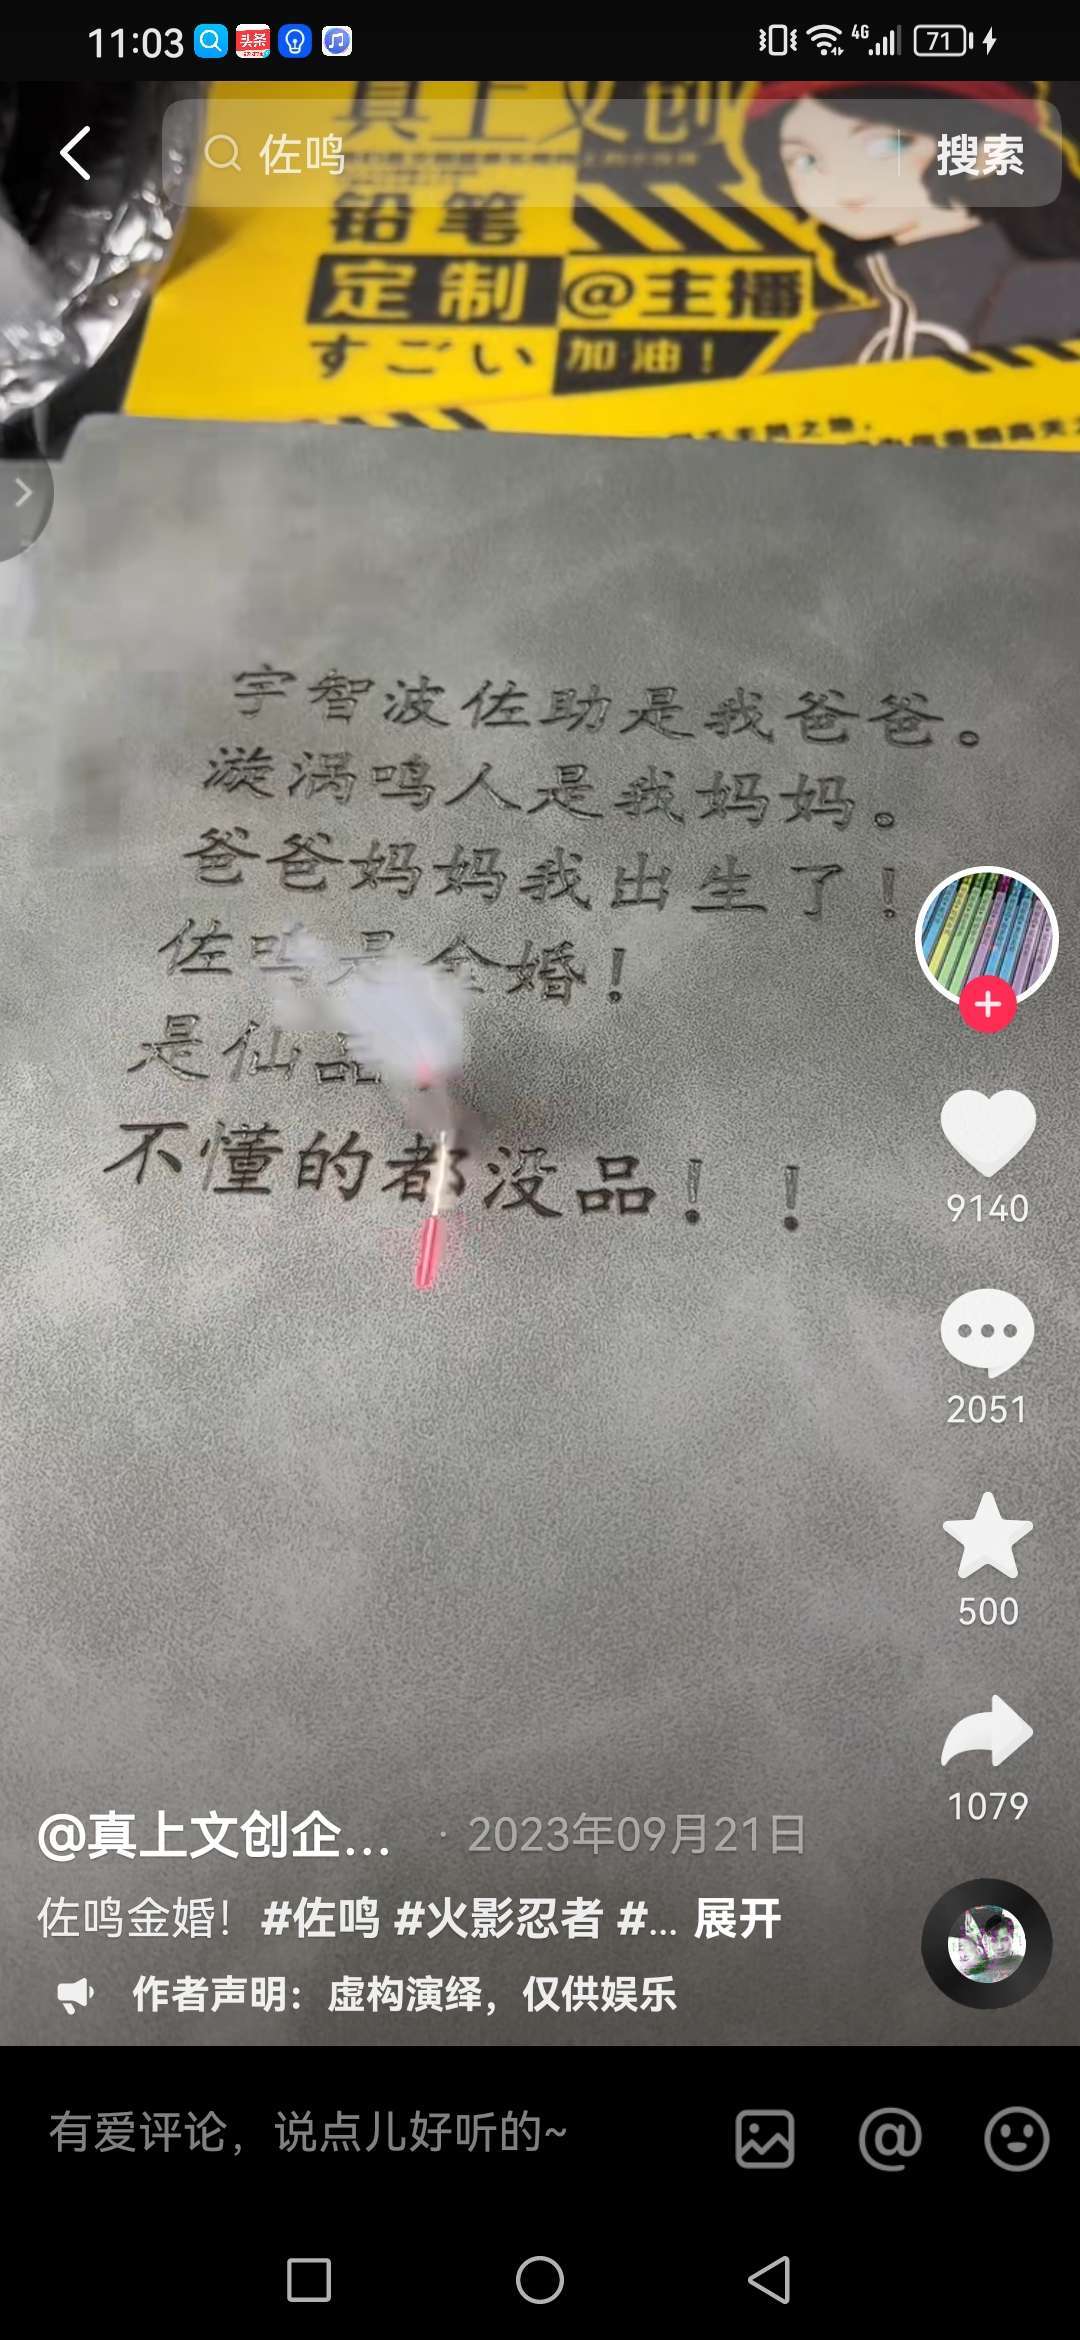 11:03
头条
4G
71
佐鸣
搜索
真上文创
铅笔
定制
@主播
すごい
加油！
宇智波佐助是我爸爸。
漩涡鸣人是我妈妈。
爸爸妈妈我出生了！
佐鸣是金婚！
是仙品
不懂的都没品！！
9140
2051
500
1079
@真上文创企... · 2023年09月21日
佐鸣金婚！#佐鸣 #火影忍者 #... 展开
作者声明：虚构演绎，仅供娱乐
有爱评论，说点儿好听的~